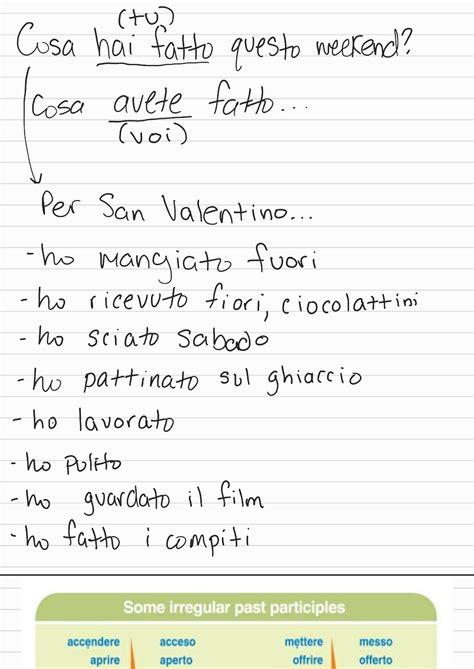 (tu)
Cosa hai fatto questo weekend?
Cosa avete fatto...
(voi)
Per San Valentino...
-ho mangiato fuori
-ho ricevuto fiori, ciocolattini
-ho sciato sabado
-ho pattinato sul ghiaccio
-ho lavorato
-ho pulito
-ho guardato il film
-ho fatto i compiti
Some irregular past participles
accendere acceso mettere messo
aprire aperto offrire offerto